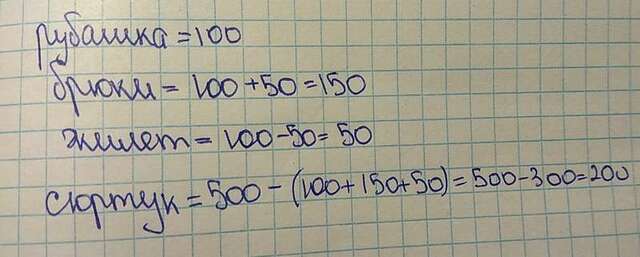 рубашка = 100
брюки = 100 + 50 = 150
жилет = 100 - 50 = 50
сюртук = 500 - (100 + 150 + 50) = 500 - 300 = 200